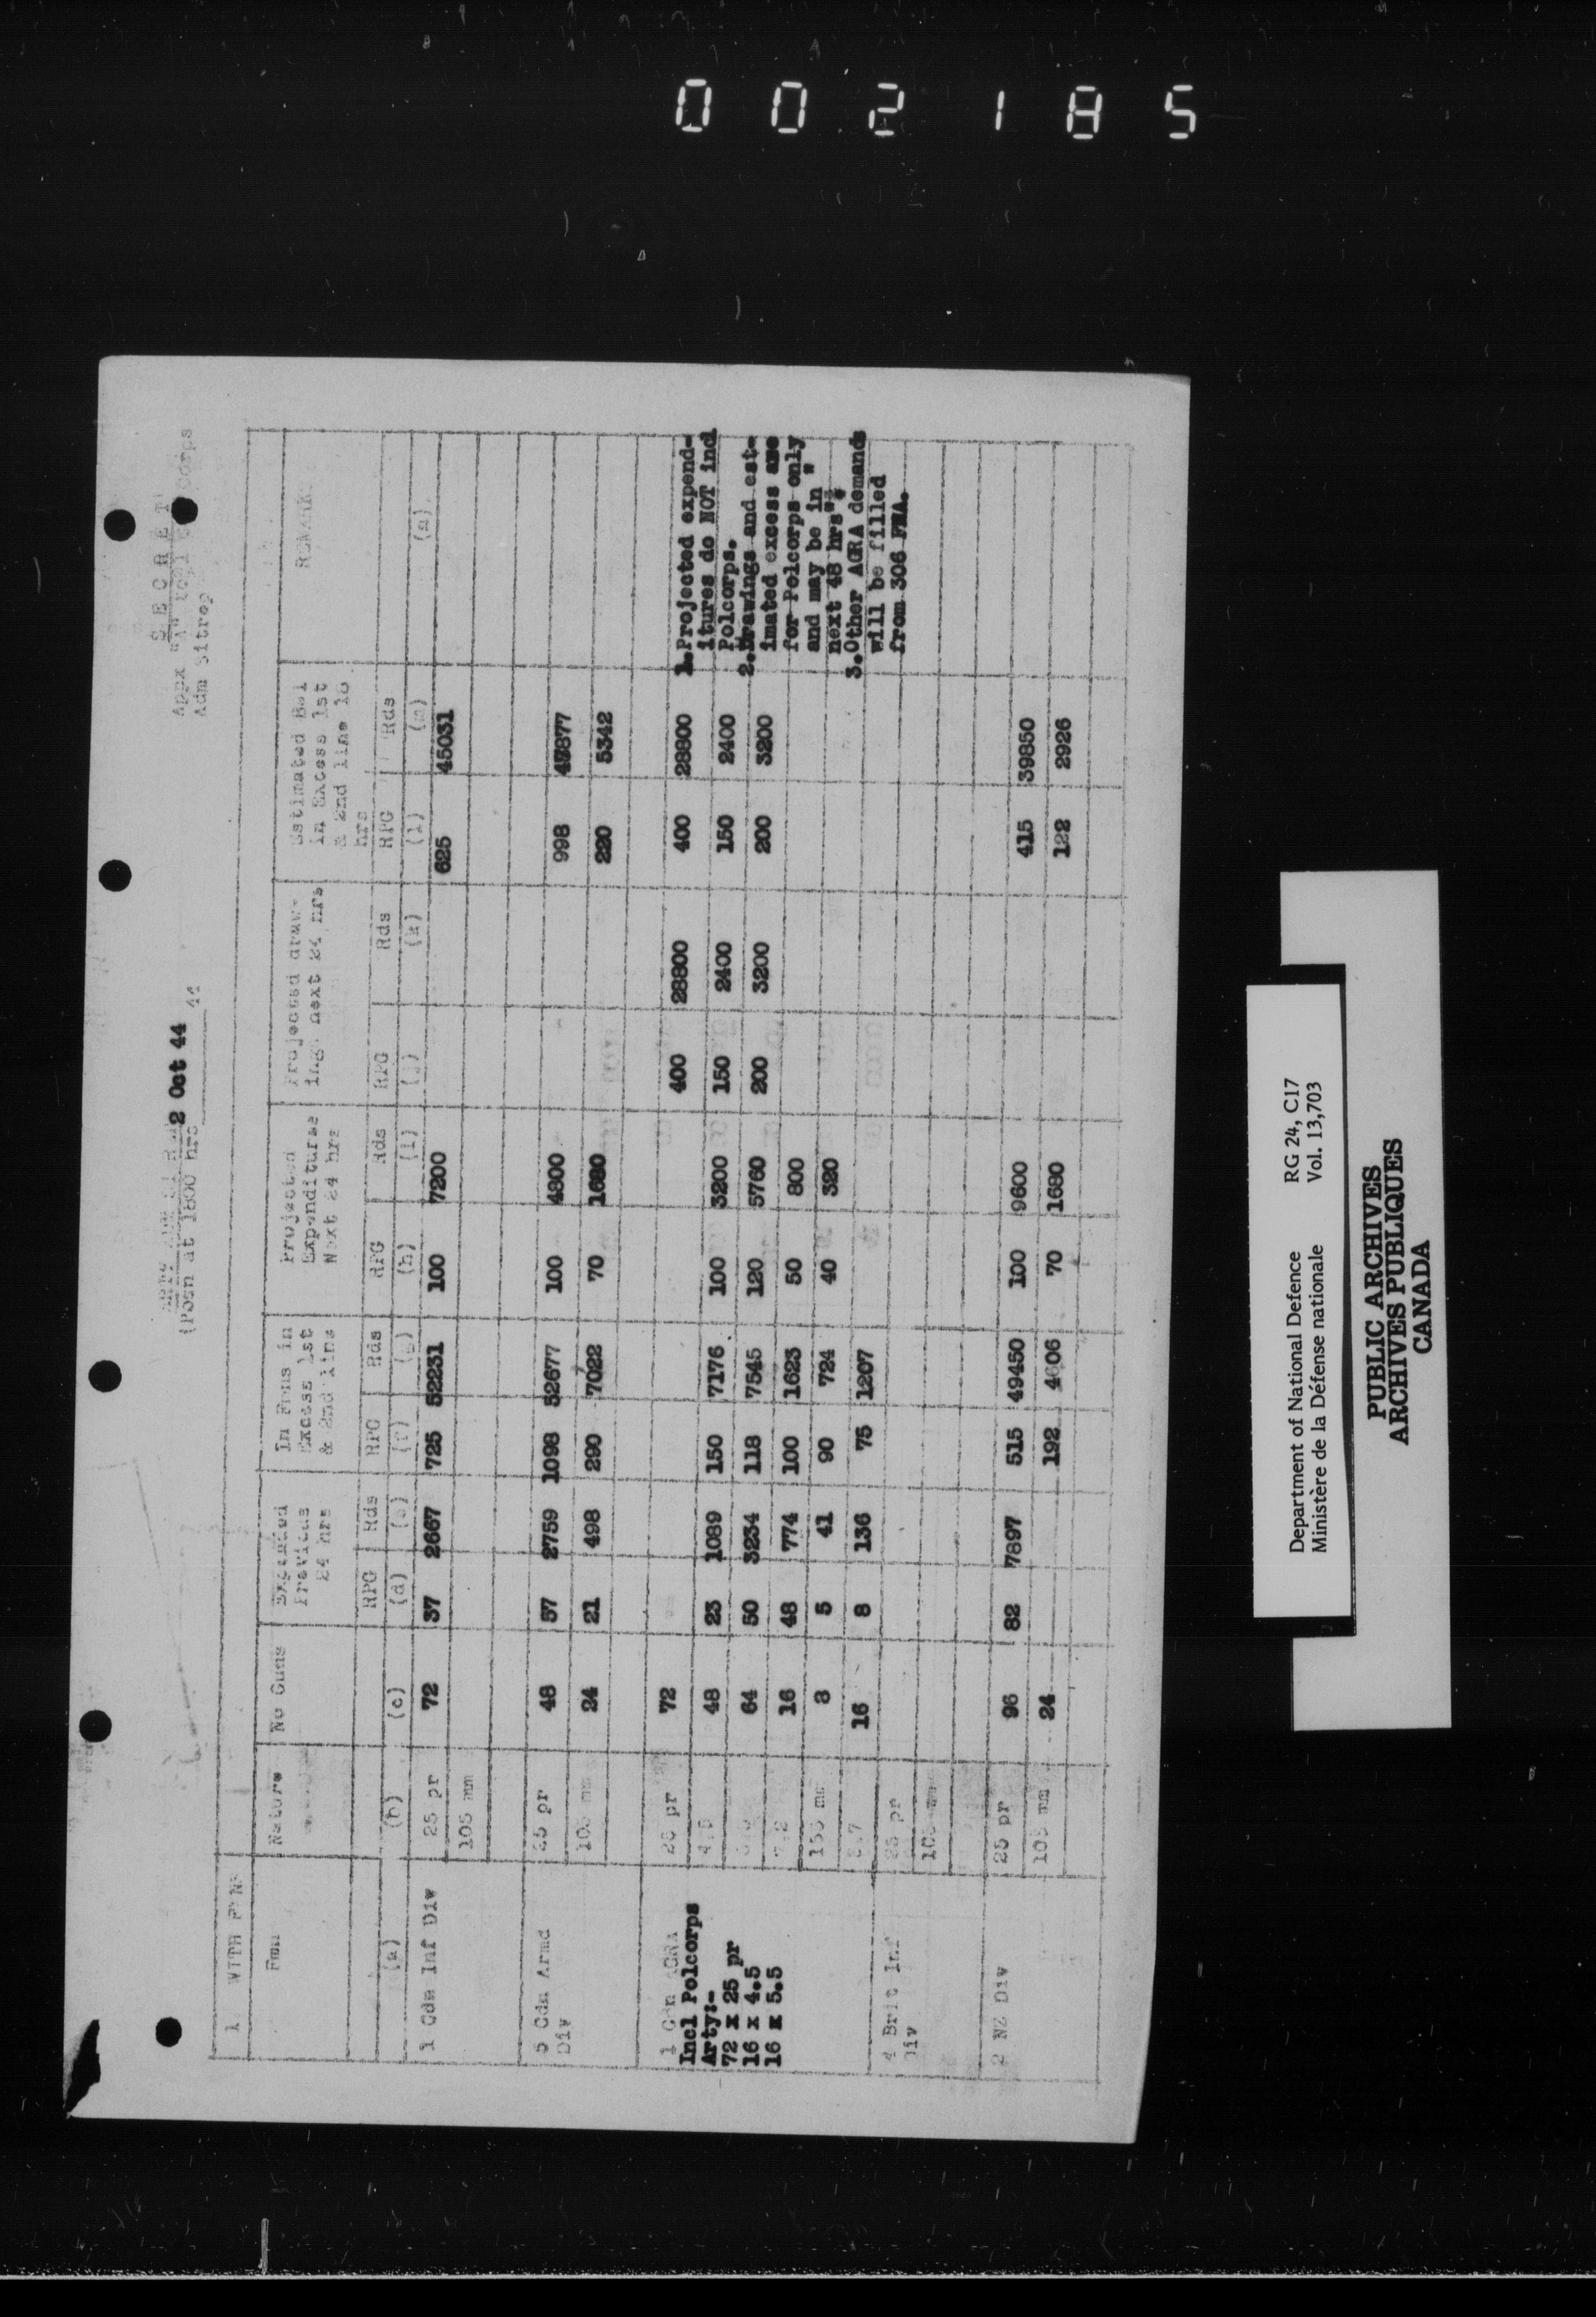 002185
S E C R E T
Appx "A" to 1 Cdn Corps
Adm Sitrep
(Posn at 1800 hrs 2 Oct 44
1 WITH FMNS
Fmn | Nature | No Guns | Expended Previous 24 hrs | In Fmns in Excess 1st & 2nd line | Projected Expenditures Next 24 hrs | Projected draw-ings next 24 hrs | Estimated Bal in Excess 1st & 2nd line 18 hrs | REMARKS
RPG | Rds | RPG | Rds | RPG | Rds | RPG | Rds | RPG | Rds
(a) | (b) | (c) | (d) | (e) | (f) | (g) | (h) | (i) | (j) | (k) | (l) | (m) | (n)
1 Cdn Inf Div | 25 pr | 72 | 37 | 2667 | 725 | 52231 | 100 | 7200 | 625 | 45031
105 mm
5 Cdn Armd Div | 25 pr | 48 | 57 | 2759 | 1098 | 52677 | 100 | 4800 | 998 | 47877
105 mm | 24 | 21 | 498 | 290 | 7022 | 70 | 1680 | 220 | 5342
1 Cdn AGRA | 25 pr | 72 | 400 | 28800 | 400 | 28800
4.5 | 48 | 23 | 1089 | 150 | 7176 | 100 | 3200 | 150 | 2400 | 150 | 2400
5.5 | 64 | 50 | 3234 | 118 | 7545 | 120 | 5760 | 200 | 3200 | 200 | 3200
7.2 | 16 | 48 | 774 | 100 | 1623 | 50 | 800
155 mm | 8 | 5 | 41 | 90 | 724 | 40 | 320
3.7 | 16 | 8 | 136 | 75 | 1207
Incl Polcorps
Arty:-
72 x 25 pr
16 x 4.5
16 x 5.5
1.Projected expend-
itures do NOT incl
Polcorps.
2.Drawings and est-
imated excess are
for Polcorps only
and may be in "
next 48 hrs".
3.Other AGRA demands
will be filled
from 306 FMA.
4 Brit Inf Div | 25 pr
105 mm
2 NZ Div | 25 pr | 96 | 82 | 7897 | 515 | 49450 | 100 | 9600 | 415 | 39850
105 mm | 24 | 192 | 4606 | 70 | 1680 | 122 | 2926
Department of National Defence RG 24, C17
Ministère de la Défense nationale Vol. 13,703
PUBLIC ARCHIVES
ARCHIVES PUBLIQUES
CANADA